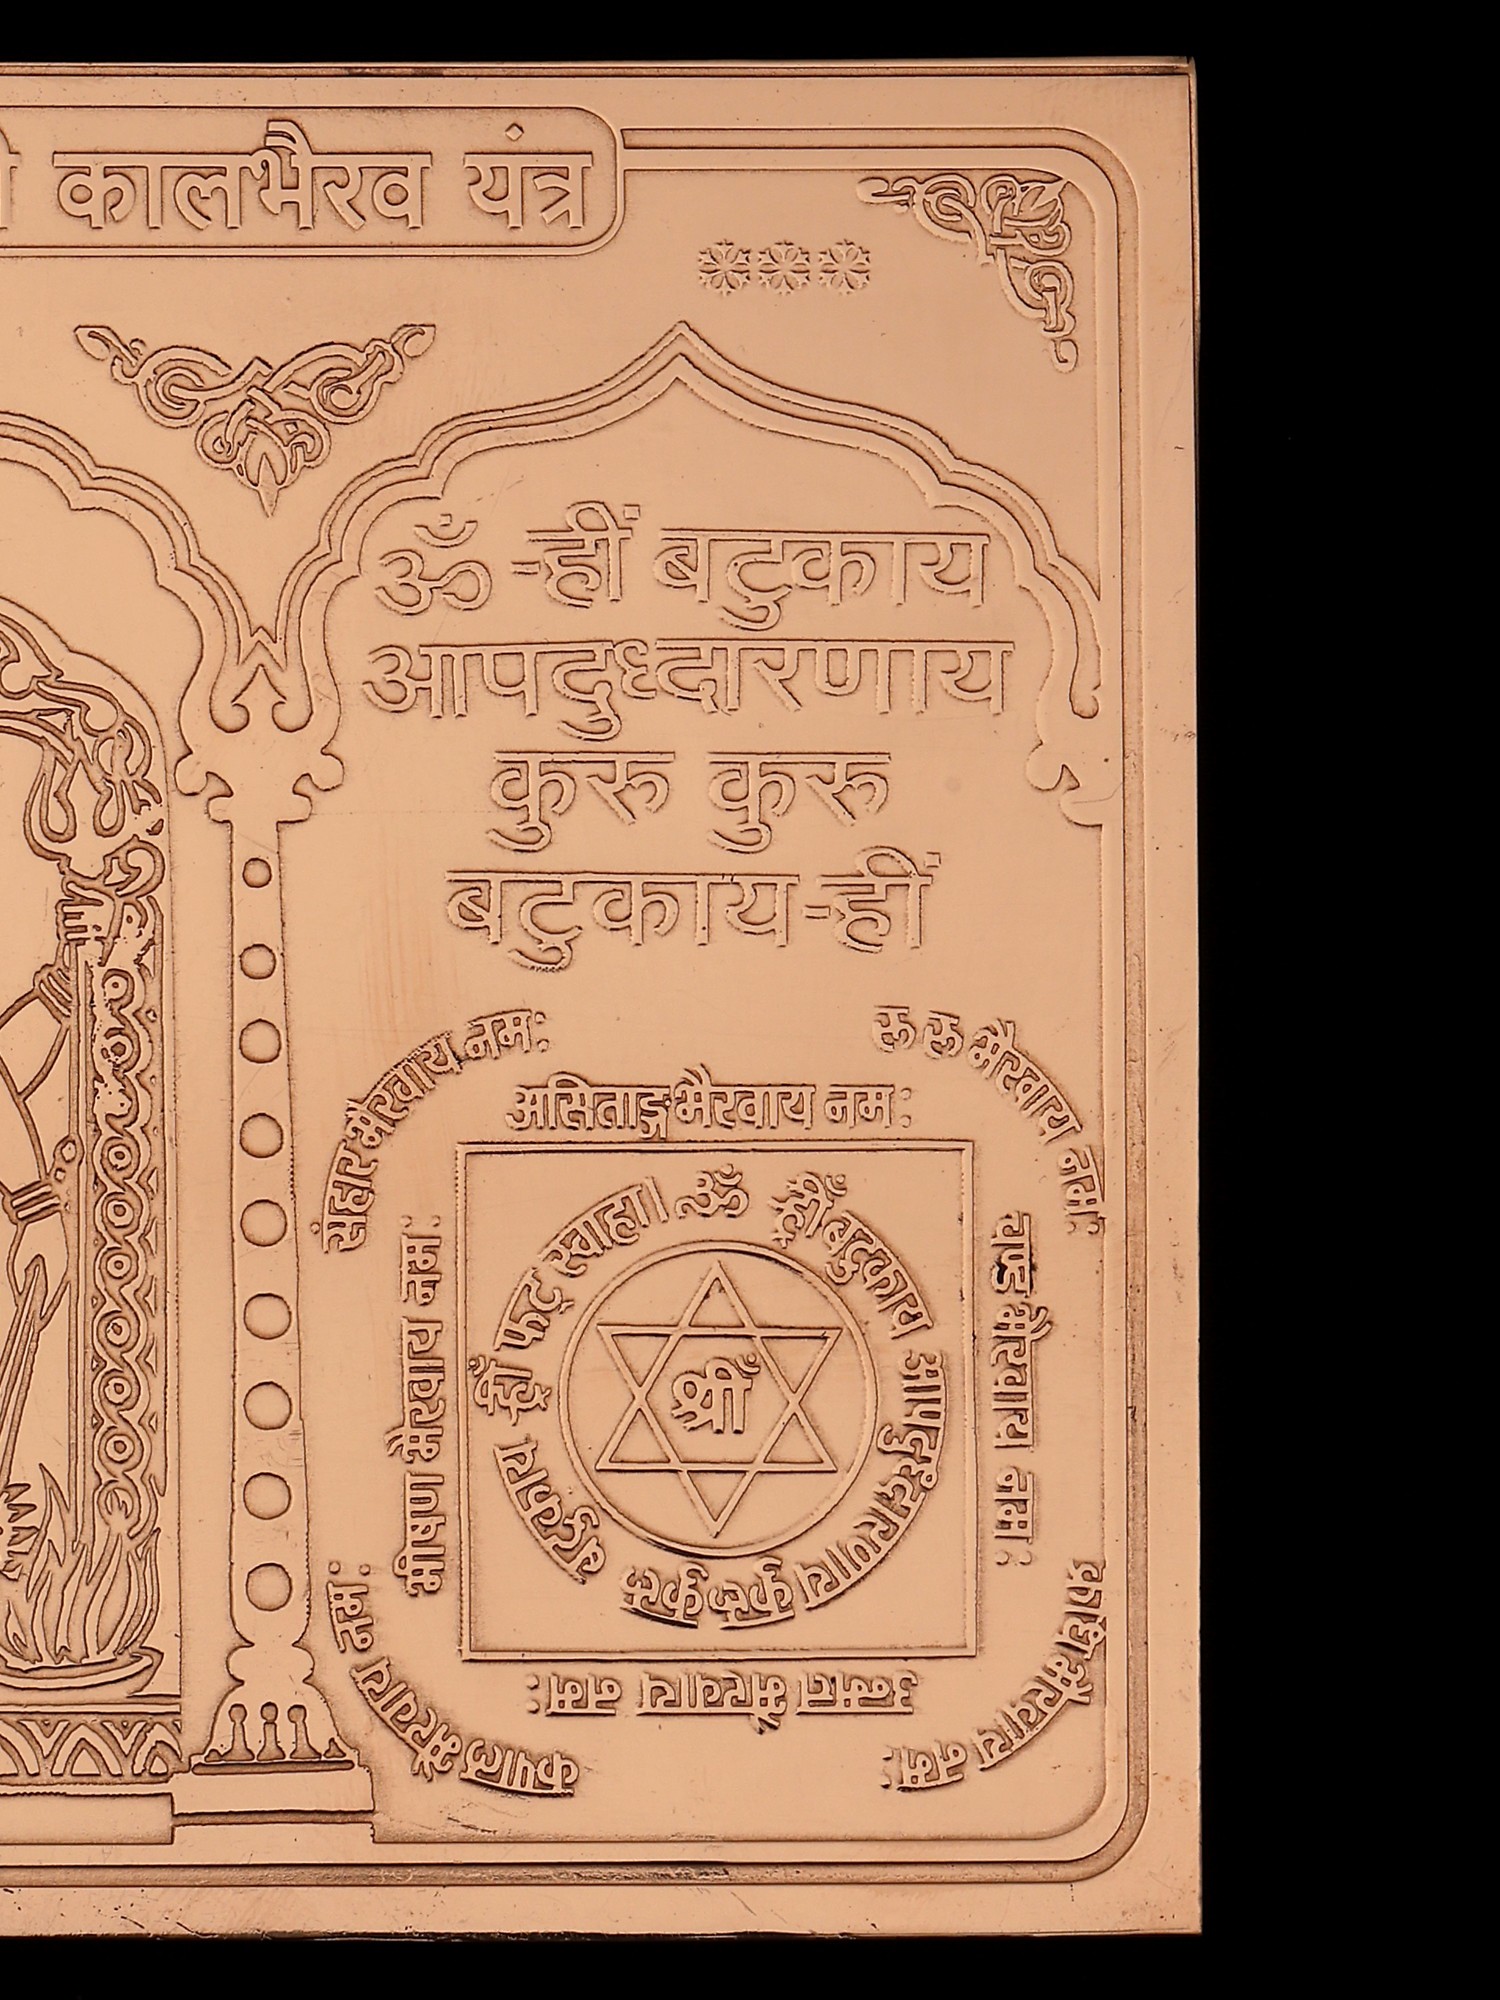 कालभैरव यंत्र
ॐ -हीं बटुकाय
आपदुध्दारणाय
कुरू कुरू
बटुकाय-हीं
संहार भैरवाय नम:
रू रू भैरवाय नम:
असिताङ्ग भैरवाय नम:
ॐ ह्रीं बटुकाय आपदुध्दारणाय कुरू कुरू बटुकाय ह्रीं फट् स्वाहा।
श्रीं
भीषण भैरवाय नम:
चण्ड भैरवाय नम:
उन्मत्त भैरवाय नम:
कपाल भैरवाय नम:
क्रोध भैरवाय नम: